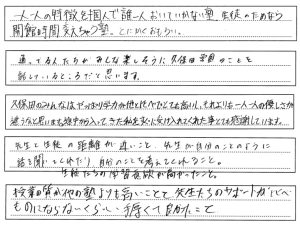 一人一人の特徴を掴んで誰一人おいていかない塾。生徒のためなら
開館時間変えちゃう塾。とにかくおもろい。
通ってる人たちがみんな楽しそうに久保田学園のことを
話しているところだと思います。
久保田のみんなはやっぱり学力が他と比べてとても高いし、それよりも一人一人の優しさが
違うなと思います。途中から入ってきた私を快く受け入れてくれた事とても感謝しています。
先生と生徒の距離が近いこと、先生が自分のことのように
話を聞いてくれたり自分のことを考えてくれること。
生徒たちの学習意欲が高かったこと。
授業の質が他の塾よりも高いことで、先生たちのサポートが比べ
ものにならないくらい手厚くて良かったこと